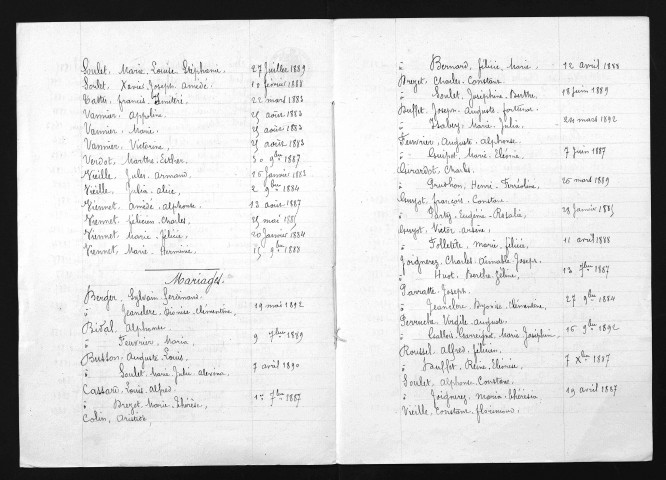 Soulet, Marie Louise Stéphanie. 27 Juillet 1889
Soulet, Xavier Joseph Amédé. 12 février 1888
francis 22 mars 1883
Vannier, Appoline. 25 août 1883
Vannier, Marie. 25 août 1883
Vannier, Victorine, 25 août 1883
Verdot, Marthe Esther. 30 9bre 1887
Vieille, Jules Armand. 16 janvier 1883
Vieille, Julia Alice, 2 9bre 1884
Viennet, Amédé Alphonse. 13 août 1887
Viennet, félicien Charles. 25 mai 1885
Viennet, Marie félicie. 20 Janvier 1884
Viennet, Marie Hermine. 15 9bre 1888
Mariages.
Berger, Sylvain
" Jeanclere Léonise Clémentine, 19 mai 1892
Bidal, Alphonse
" Feuvrier, Maria, 9 7bre 1889
Busson, Auguste Louis.
" Soulet, Marie Julie 7 avril 1890
Cassard, Louis Alfred
" Brezet, Marie Thérèse, 1er 7bre 1887
Colin, Aristide,
" Bernard, félicie Marie. 12 avril 1888
Brezet, Charles Constant.
" Soulet, Joséphine Berthe. 18 juin 1889
Buffet, Joseph Auguste
" Isabey, Marie Julia. 24 mars 1892
Feuvrier, Auguste Alphonse.
" Marie 7 juin 1887
Girardot, Charles.
" Henri 26 mars 1889
Guyot, françois Constant.
" Eugénie Rosalie, 28 Janvier 1885
Guyot, Victor Arsène.
" Folletête, Marie félicie, 11 avril 1888
Joignerez, Charles Aimable Joseph.
" Huot, Berthe Céline, 13 7bre 1887
Parratte, Joseph.
" Jeanclere, Clémentine, 27 9bre 1884
Perruche, Virgile Auguste.
" Marie Joséphine. 16 9bre 1892
Roussel, Alfred félicien,
" Buffet, Reine 7 Xbre 1887
Soulet, Alphonse Constant.
" Joignerez, Maria Thérésia 19 avril 1887
Vieille, Constant